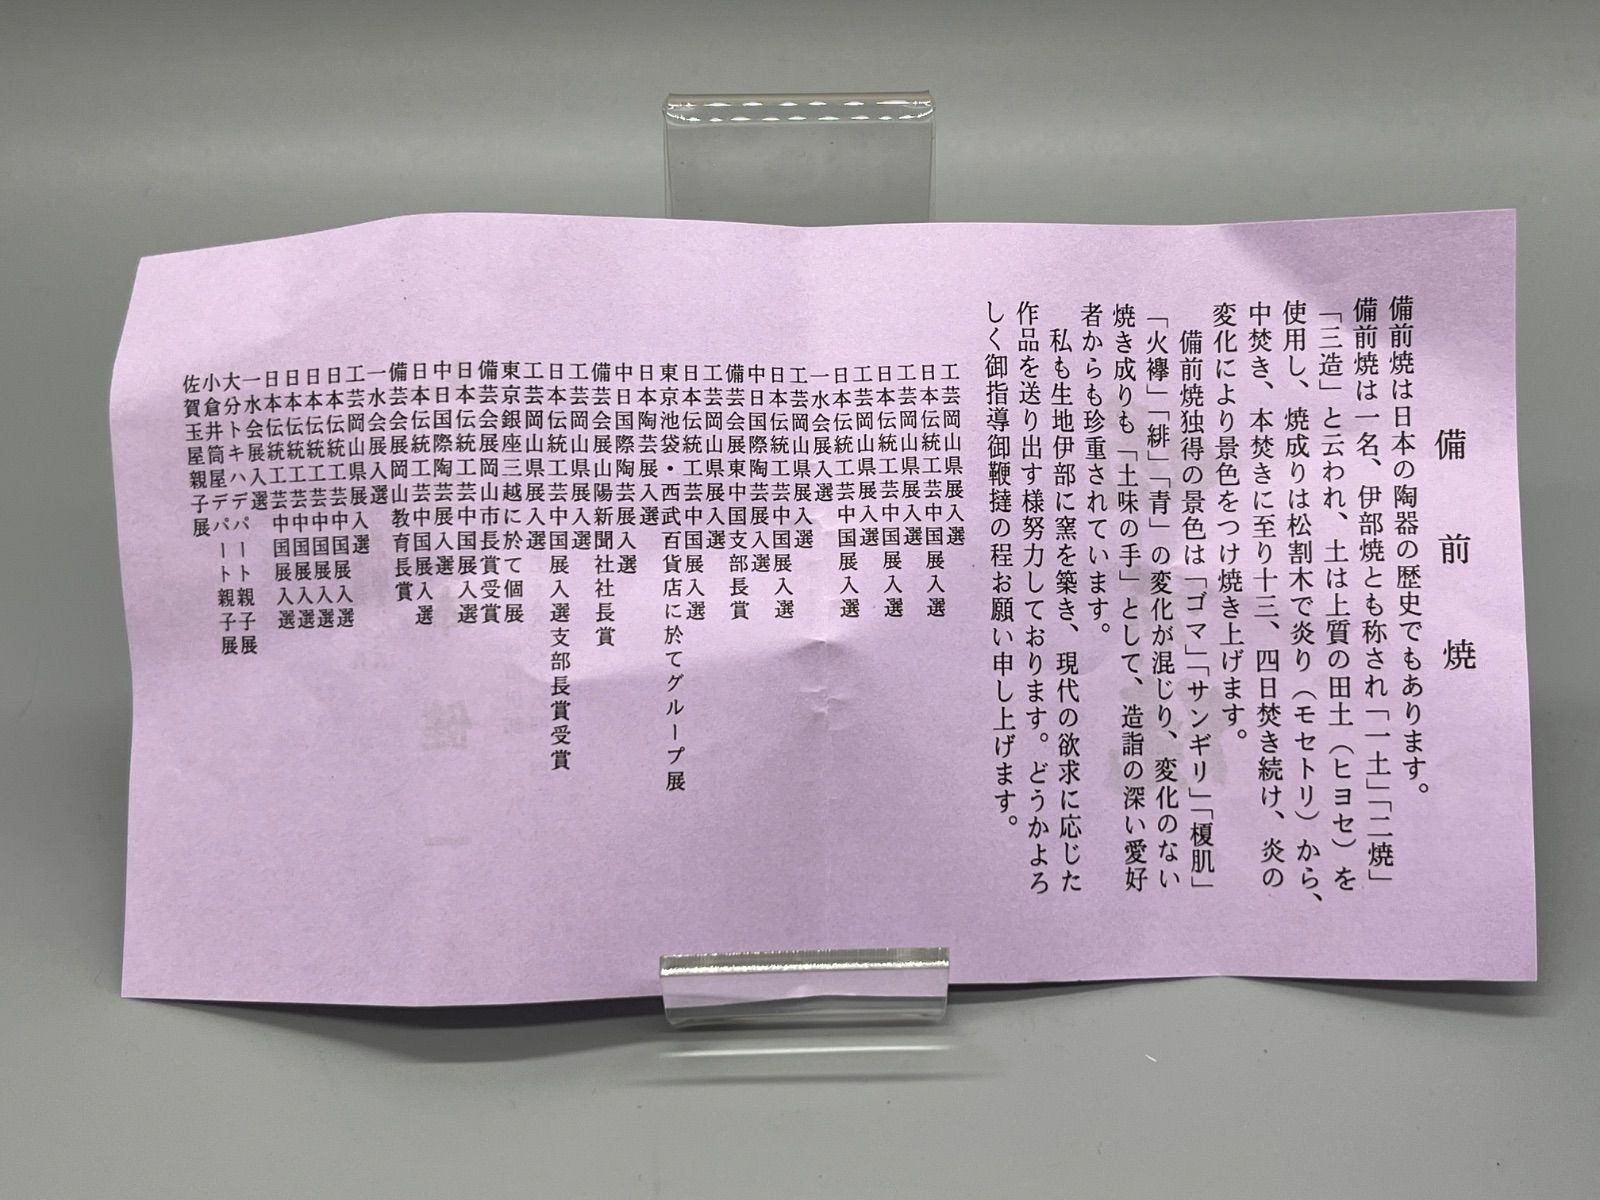 備前焼
備前焼は日本の陶器の歴史でもあります。
備前焼は一名、伊部焼とも称され「一土」「二焼」
「三造」と云われ、土は上質の田土（ヒヨセ）を
使用し、焼成りは松割木で炎り（モセトリ）から、
中焚き、本焚きに至り十三、四日焚き続け、炎の
変化により景色をつけ焼き上げます。
備前焼独得の景色は「ゴマ」「サンギリ」「榎肌」
「火襷」「緋」「青」の変化が混じり、変化のない
焼き成りも「土味の手」として、造詣の深い愛好
者からも珍重されています。
私も生地伊部に窯を築き、現代の欲求に応じた
作品を送り出す様努力しております。どうかよろ
しく御指導御鞭撻の程お願い申し上げます。
工芸岡山県展入選
日本伝統工芸中国展入選
工芸岡山県展入選
日本伝統工芸中国展入選
工芸岡山県展入選
日本伝統工芸中国展入選
一水会展入選
工芸岡山県展入選
日本伝統工芸中国展入選
中日国際陶芸展入選
備芸会展東中国支部長賞
工芸岡山県展入選
日本伝統工芸中国展入選
東京池袋・西武百貨店に於てグループ展
日本陶芸展入選
中日国際陶芸展入選
備芸会展山陽新聞社社長賞
工芸岡山県展入選
日本伝統工芸中国展入選支部長賞受賞
工芸岡山県展入選
東京銀座三越に於て個展
備芸会展岡山市長賞受賞
日本伝統工芸中国展入選
中日国際陶芸展入選
日本伝統工芸中国展入選
備芸会展岡山教育長賞
一水会展入選
工芸岡山県展入選
日本伝統工芸中国展入選
日本伝統工芸中国展入選
日本伝統工芸中国展入選
日本伝統工芸中国展入選
一水会展入選
大分トキハデパート親子展
小倉井筒屋デパート親子展
佐賀玉屋親子展